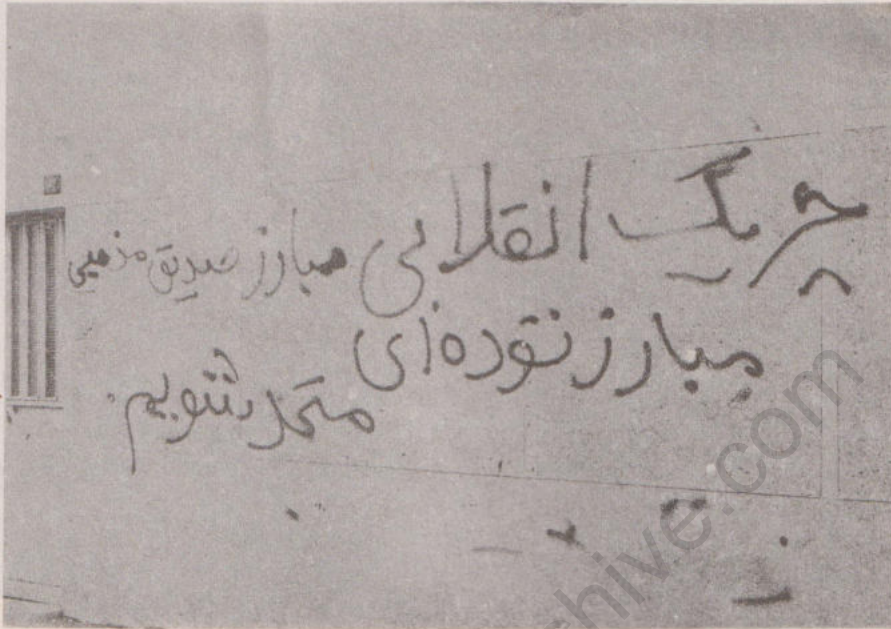 چریک انقلابی مبارز صدیق مذهبی
مبارز توده‌ای
متحد شویم
hive.com